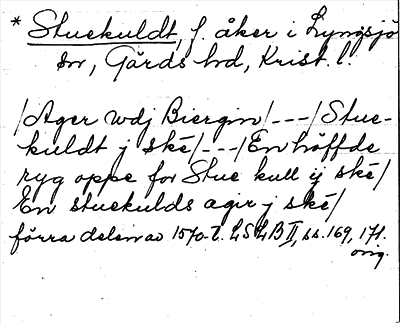 * Stuekuldt, f. åker i Lyngsjö
sn, Gärds hd, Krist. l.
/Ager wdj Biergin/---/Stue-
kuldt j ské/---/En höffde
ryg oppe for Stue kull ij ské/
En stuekulds agir j ské/
förra delen av 1570-t. LSLB II, ss. 169, 171.
orig.